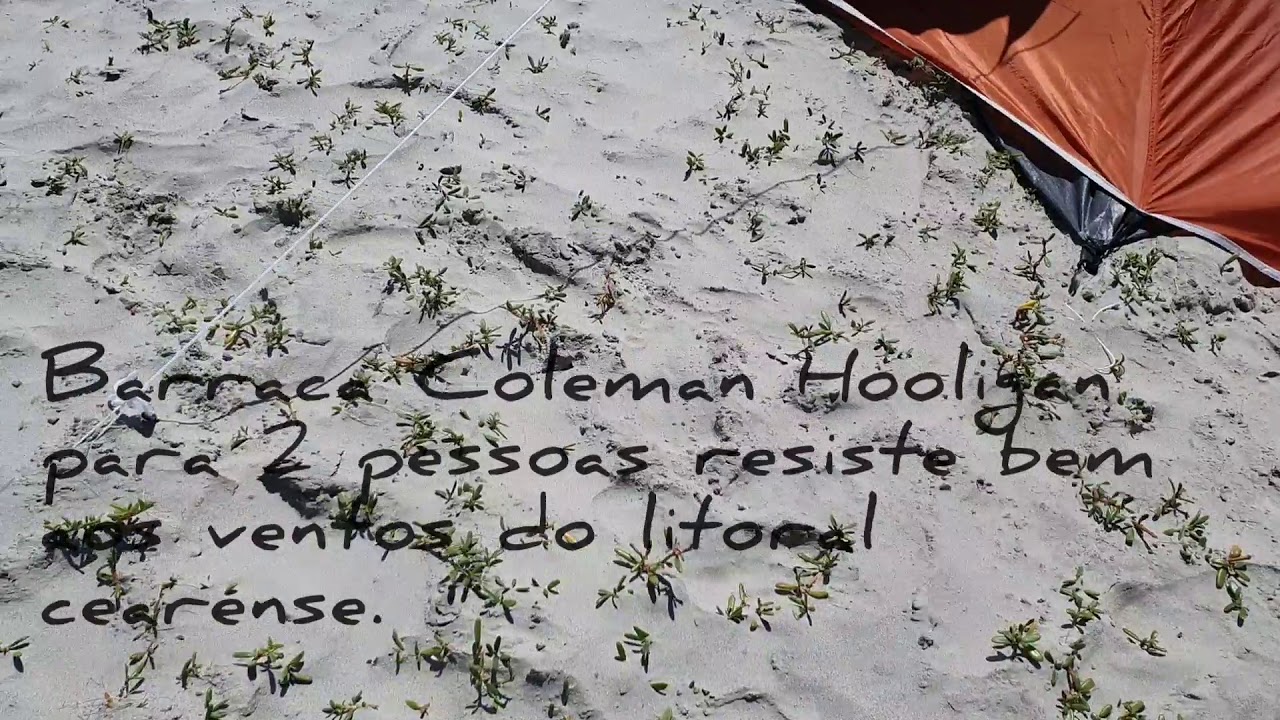 Barraca Coleman Hooligan
para 2 pessoas resiste bem
aos ventos do litoral
cearense.